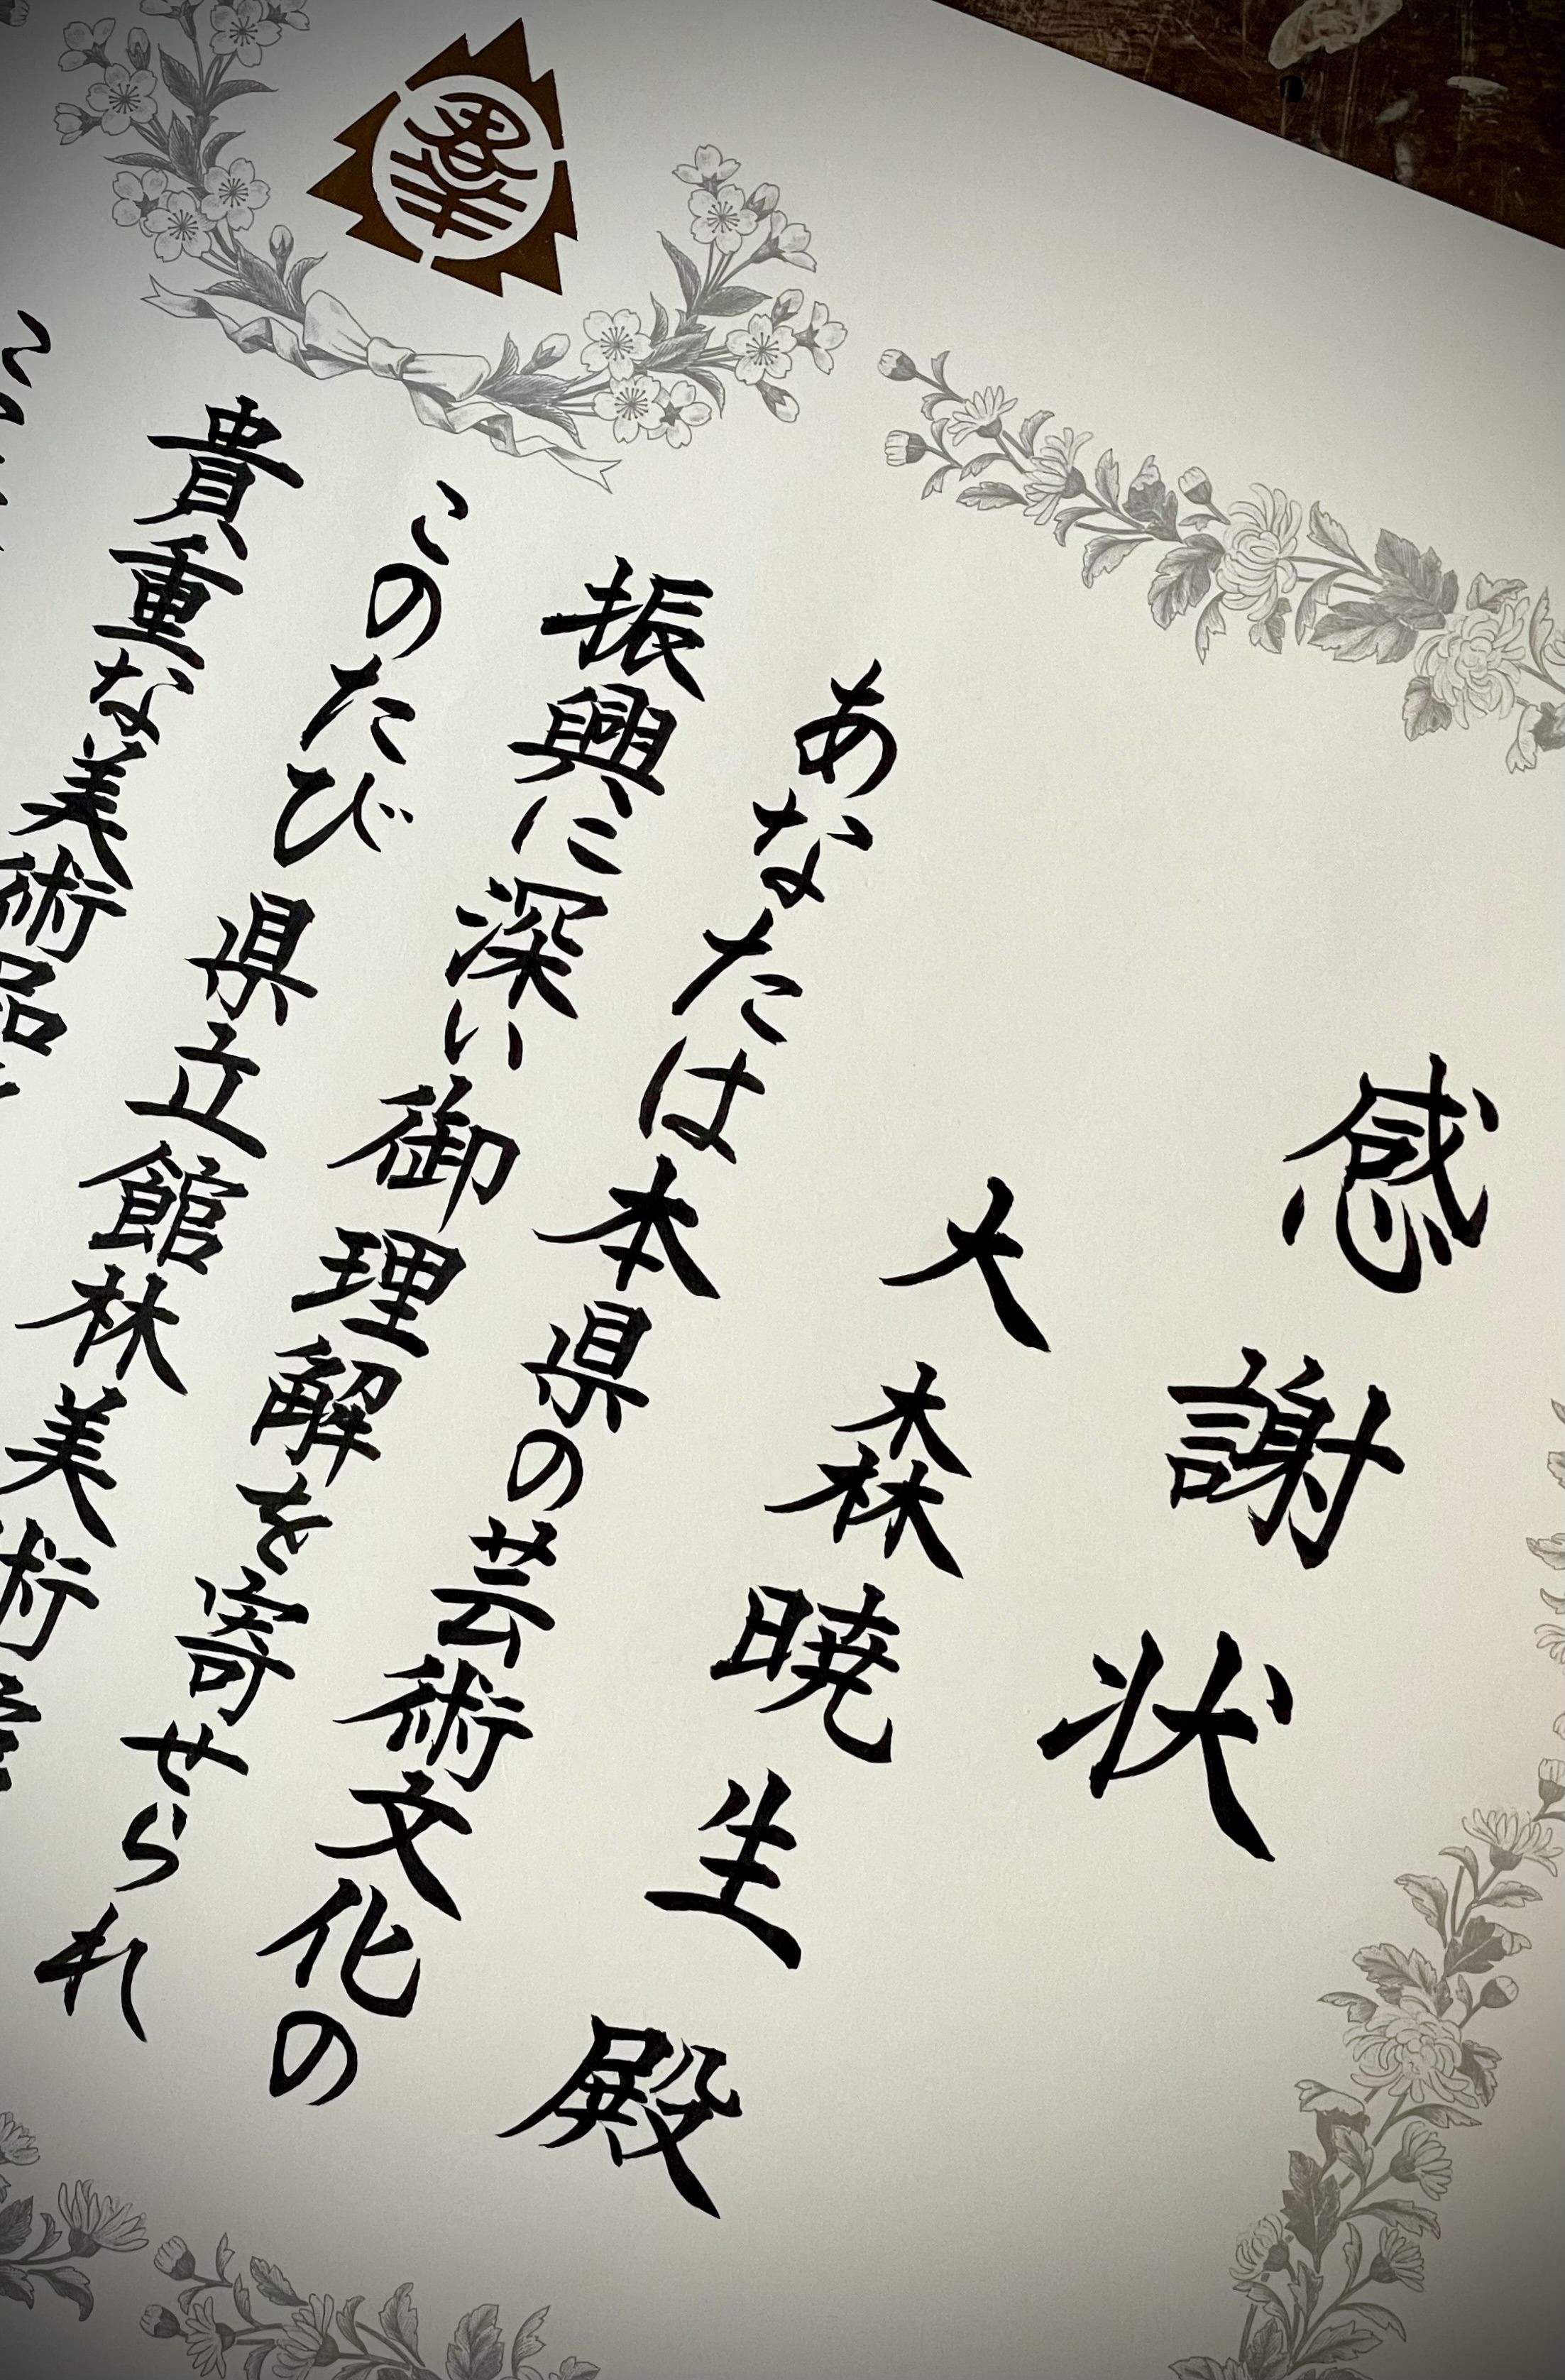 感謝状
大森暁生 殿
あなたは本県の芸術文化の
振興に深い御理解を寄せられ
このたび県立館林美術
貴重な美術品